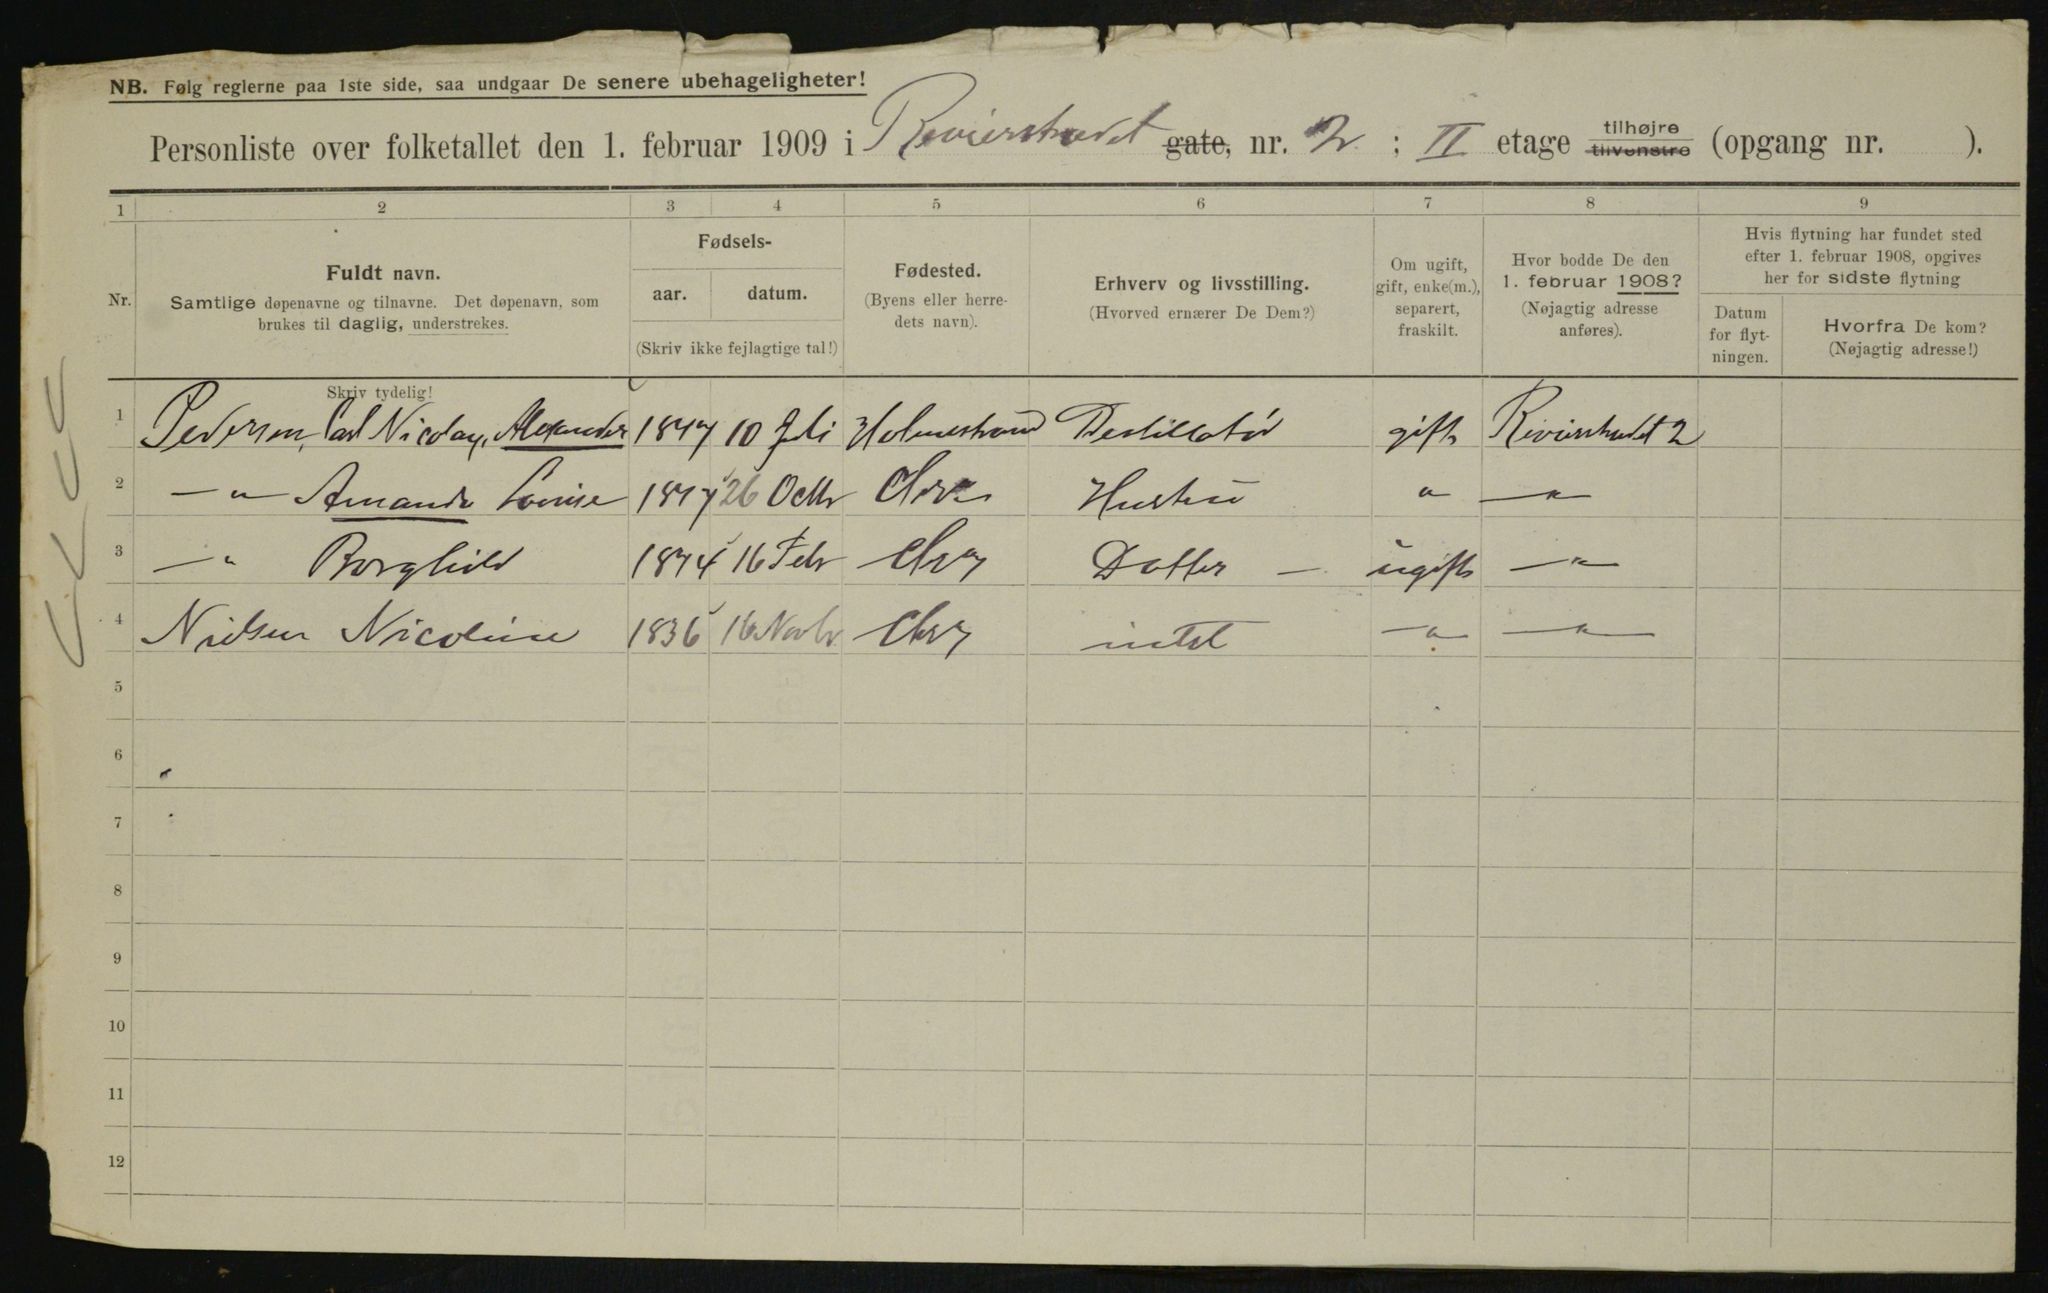 NB. Følg reglerne paa 1ste side, saa undgaar De senere ubehageligheter!
Personliste over folketallet den 1. februar 1909 i Revierstrædet gate, nr. 2 ; II etage tilhøjre tilvenstre (opgang nr. ).
1 2 3 4 5 6 7 8 9
Nr.
Fuldt navn.
Samtlige døpenavne og tilnavne. Det døpenavn, som
brukes til daglig, understrekes.
Skriv tydelig!
Fødsels-
aar. datum.
(Skriv ikke fejlagtige tal!)
Fødested.
(Byens eller herre-
dets navn).
Erhverv og livsstilling.
(Hvorved ernærer De Dem?)
Om ugift,
gift, enke(m.),
separert,
fraskilt.
Hvor bodde De den
1. februar 1908?
(Nøjagtig adresse
anføres).
Hvis flytning har fundet sted
efter 1. februar 1908, opgives
her for sidste flytning
Datum
for flyt-
ningen.
Hvorfra De kom?
(Nøjagtig adresse!)
1 Pedersen, Carl Nicolay, Alexander 1847 10 Juli Holmestrand Destillatør gift Revierstrædet 2
2 — " — Amanda Lovise 26 Octbr Hustru " — " —
3 — " Borghild 1874 16 Febr Chra Datter — ugift — " —
4 Nielsen Nicoline 1836 16 Novbr Chra intet — " — — " —
5
6
7
8
9
10
11
12